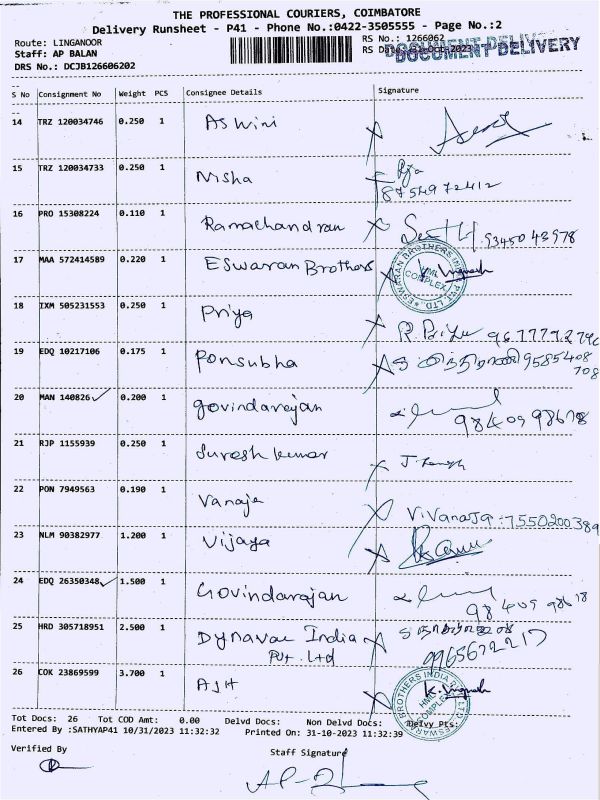 THE PROFESSIONAL COURIERS, COIMBATORE
Delivery Runsheet - P41 - Phone No.:0422-3505555 - Page No.:2
Route: LINGANOOR
Staff: AP BALAN
DRS No.: DCJB126606202
RS No.: 1266062
RS Oct-2023
DOCUMENT DELIVERY
S No Consignment No Weight PCS Consignee Details Signature
14 TRZ 120034746 0.250 1 Aswini
15 TRZ 120034733 0.250 1 Nisha 8754972412
16 PRO 15308224 0.110 1 Ramachandran 9345043978
17 MAA 572414589 0.220 1 Eswaran Brothers
ESWARAN BROTHERS INDIA PVT. LTD HML COMPLEX
18 IXM 505231553 0.250 1 Priya
19 EDQ 10217106 0.175 1 Ponsubha 9585408
708
20 MAN 140826 0.200 1 govindarajan
98409 98678
21 RJP 1155939 0.250 1 Suresh kumar
22 PON 7949563 0.190 1 Vanaja V. Vanaja: 7550200389
23 NLM 90382977 1.200 1 Vijaya
24 EDQ 26350348 1.500 1 Govindarajan
98409 98678
25 HRD 305718951 2.500 1 Dynavac India
Pvt. Ltd 9965672217
26 COK 23869599 3.700 1 AJH
ESWARAN BROTHERS INDIA PVT. LTD HML COMPLEX
Tot Docs: 26 Tot COD Amt: 0.00 Delvd Docs: Non Delvd Docs: Delvy Pts:
Entered By :SATHYAP41 10/31/2023 11:32:32 Printed On: 31-10-2023 11:32:39
Verified By Staff Signature